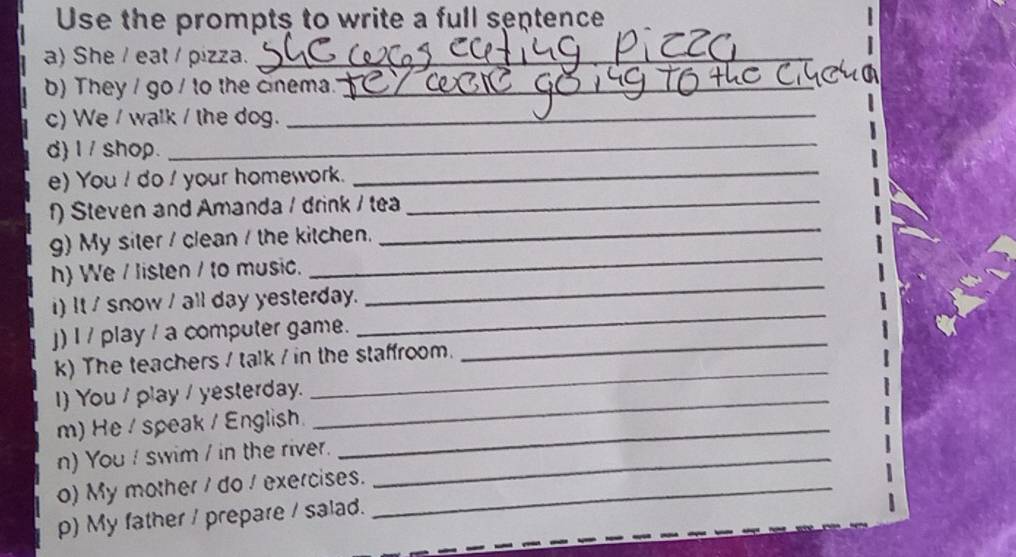 Use the prompts to write a full sentence
a) She / eat / pizza. She was eating pizza
b) They / go / to the cinema. tey were going to the cinema
c) We / walk / the dog.
d) I / shop.
e) You / do / your homework.
f) Steven and Amanda / drink / tea
g) My siter / clean / the kitchen.
h) We / listen / to music.
i) It / snow / all day yesterday.
j) I / play / a computer game.
k) The teachers / talk / in the staffroom.
l) You / play / yesterday.
m) He / speak / English.
n) You / swim / in the river.
o) My mother / do / exercises.
p) My father / prepare / salad.